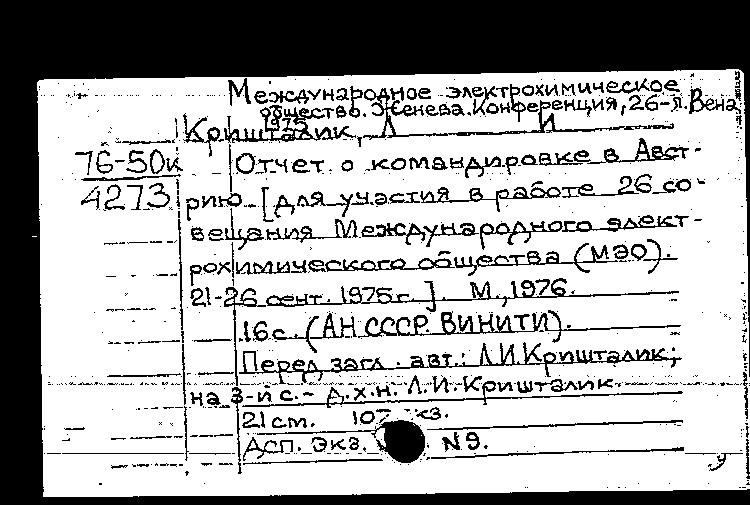 Международное электрохимическое
общество. Женева. Конференция, 26-я. Вена
1975
Кришталик, Л И
76-50к Отчет о командировке в Авст-
4273 рию [для участия в работе 26 со-
вещания Международного элект-
рохимического общества (МЭО).
21-26 сент. 1975 г.]. М., 1976.
16 с. (АН СССР. ВИНИТИ).
Перед загл. авт.: Л.И. Кришталик;
на 3-й с. - д.х.н. Л.И. Кришталик.
21 см.
Дсп. Экз. N9.